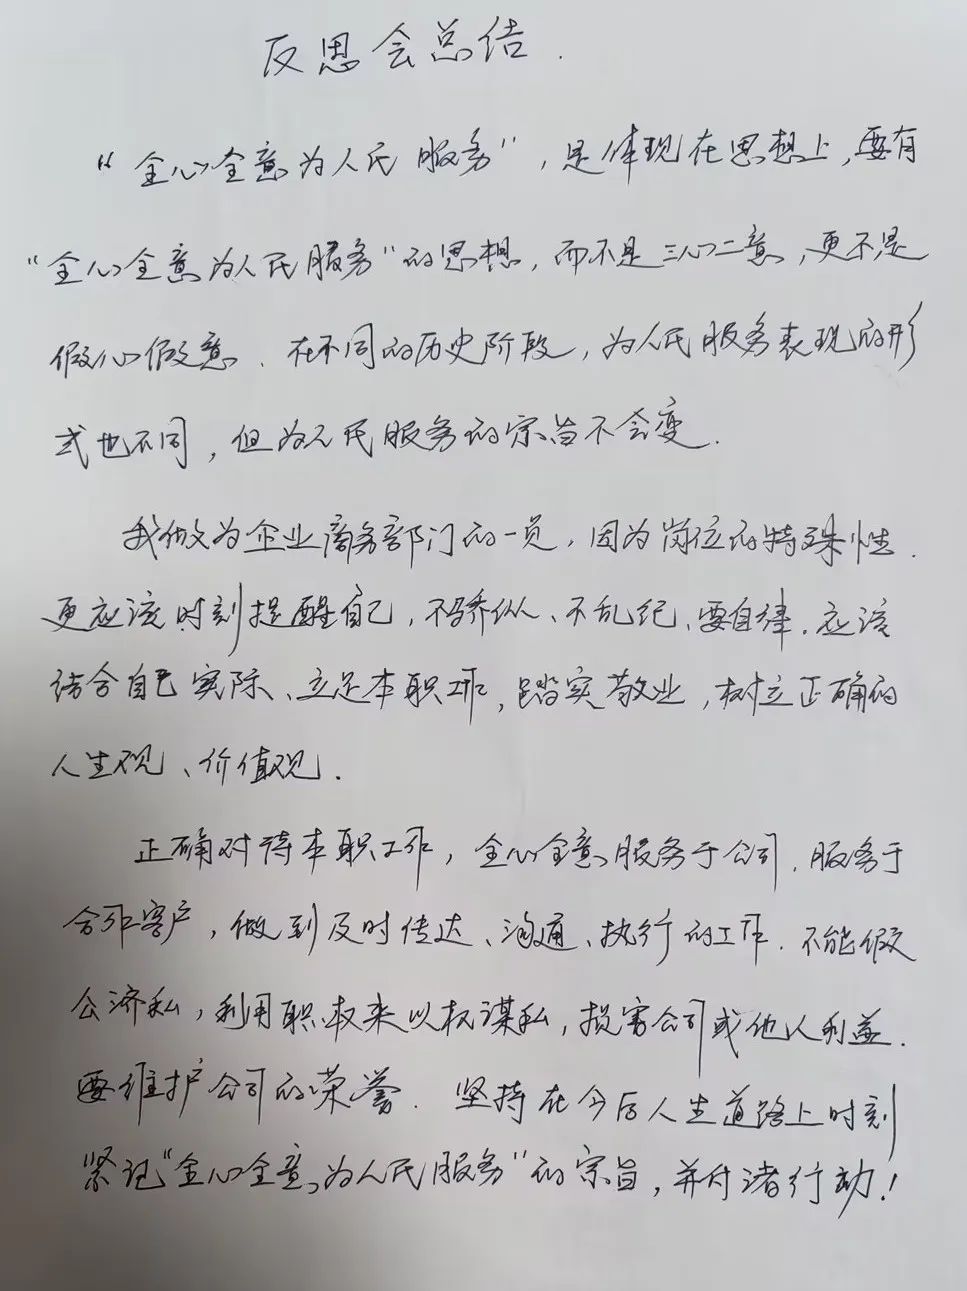 反思会总结.
"全心全意为人民服务",是体现在思想上,要有
"全心全意为人民服务"的思想,而不是三心二意,更不是
假心假意.在不同的历史阶段,为人民服务表现的形
式也不同,但为人民服务的宗旨不会变.
我做为企业商务部门的一员,因为岗位的特殊性.
更应该时刻提醒自己,不骄纵、不乱纪、要自律.应该
结合自己实际、立足本职工作,踏实敬业,树立正确的
人生观、价值观.
正确对待本职工作,全心全意服务于公司.服务于
合作客户,做到及时传达、沟通、执行的工作.不能假
公济私,利用职权来以权谋私,损害公司或他人利益.
要维护公司的荣誉.坚持在今后人生道路上时刻
紧记"全心全意为人民服务"的宗旨,并付诸行动!